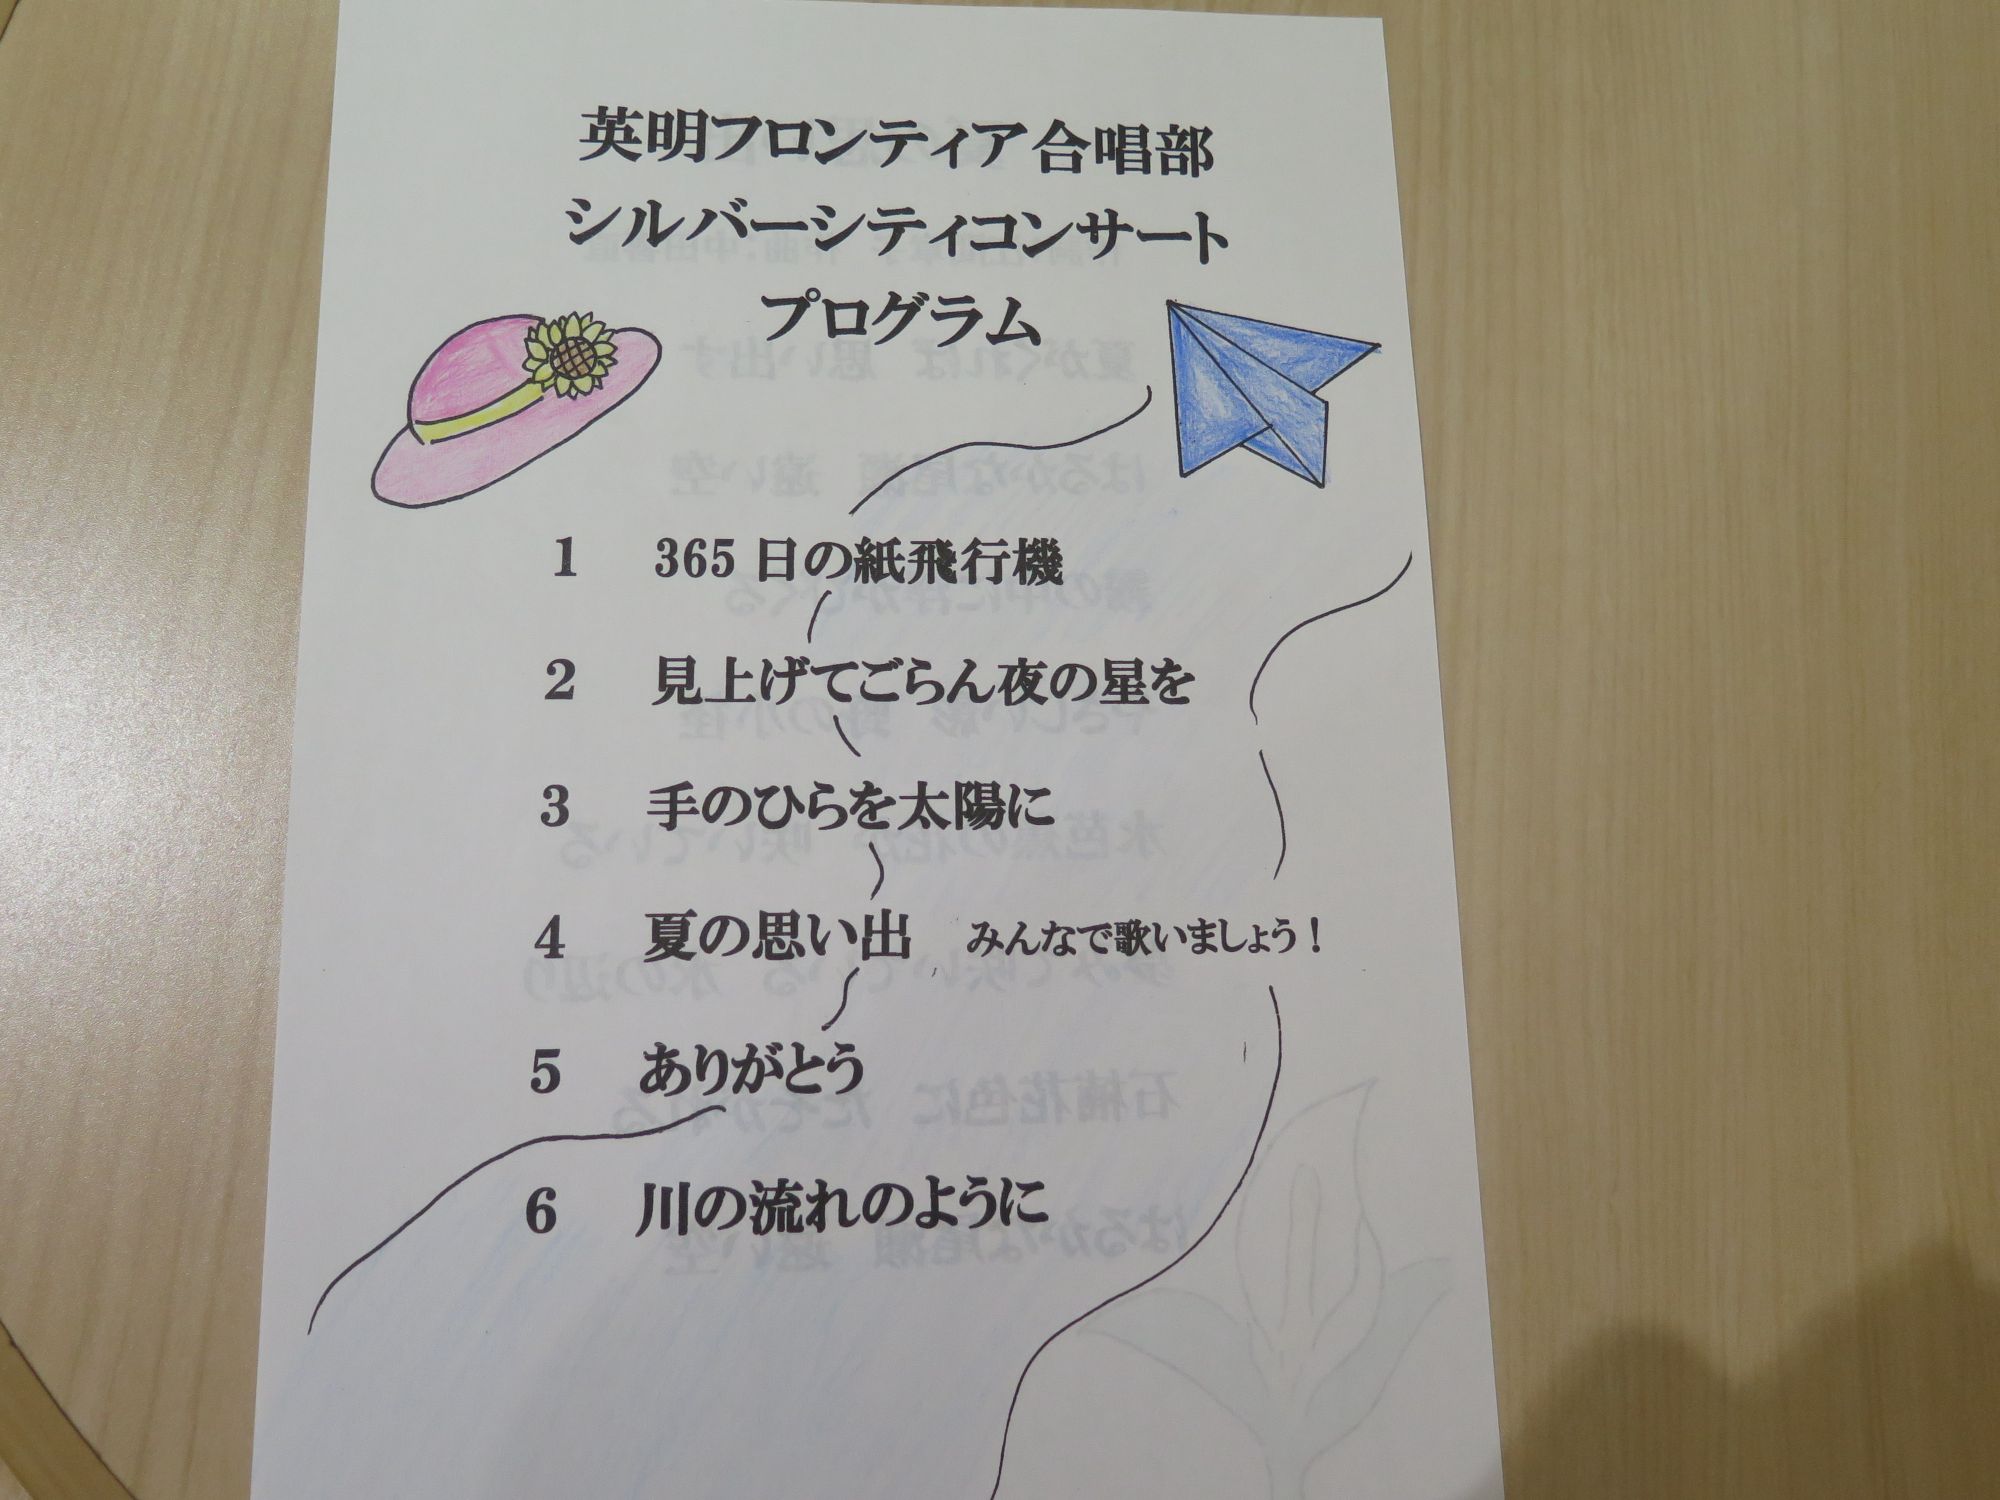 英明フロンティア合唱部
シルバーシティコンサート
プログラム
1 365日の紙飛行機
2 見上げてごらん夜の星を
3 手のひらを太陽に
4 夏の思い出 みんなで歌いましょう！
5 ありがとう
6 川の流れのように